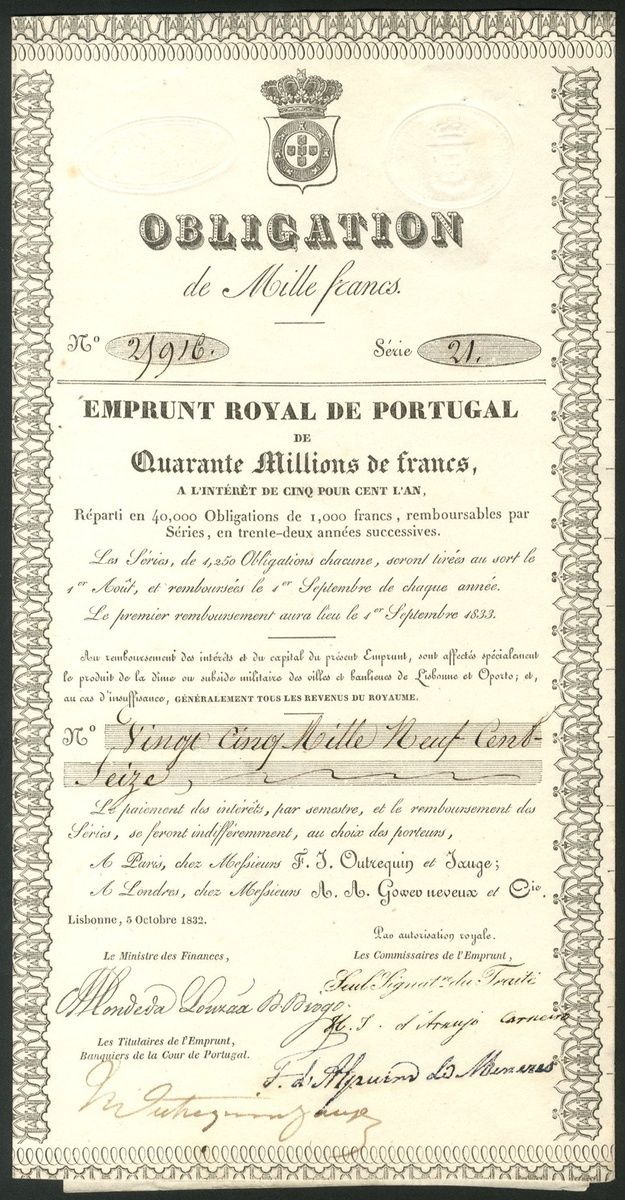 OBLIGATION
de Mille francs.
N° 25916. Série 21.
EMPRUNT ROYAL DE PORTUGAL
DE
Quarante Millions de francs,
A L'INTÉRÊT DE CINQ POUR CENT L'AN,
Réparti en 40,000 Obligations de 1,000 francs, remboursables par
Séries, en trente-deux années successives.
Les Séries, de 1,250 Obligations chacune, seront tirées au sort le
1er Août, et remboursées le 1er Septembre de chaque année.
Le premier remboursement aura lieu le 1er Septembre 1833.
Au remboursement des intérêts et du capital du présent Emprunt, sont affectés spécialement
le produit de la dîme ou subside militaire des villes et banlieues de Lisbonne et Oporto; et,
au cas d'insuffisance, GÉNÉRALEMENT TOUS LES REVENUS DU ROYAUME.
N° Vingt Cinq Mille Neuf Cent
Seize
Le paiement des intérêts, par semestre, et le remboursement des
Séries, se feront indifféremment, au choix des porteurs,
A Paris, chez Messieurs F. J. Outrequin et Jauge;
A Londres, chez Messieurs A. A. Gower neveux et Cie.
Lisbonne, 5 Octobre 1832.
Par autorisation royale.
Le Ministre des Finances,
Les Commissaires de l'Emprunt,
du Traité
H. J. d'Araujo Carneiro
Les Titulaires de l'Emprunt,
Banquiers de la Cour de Portugal.